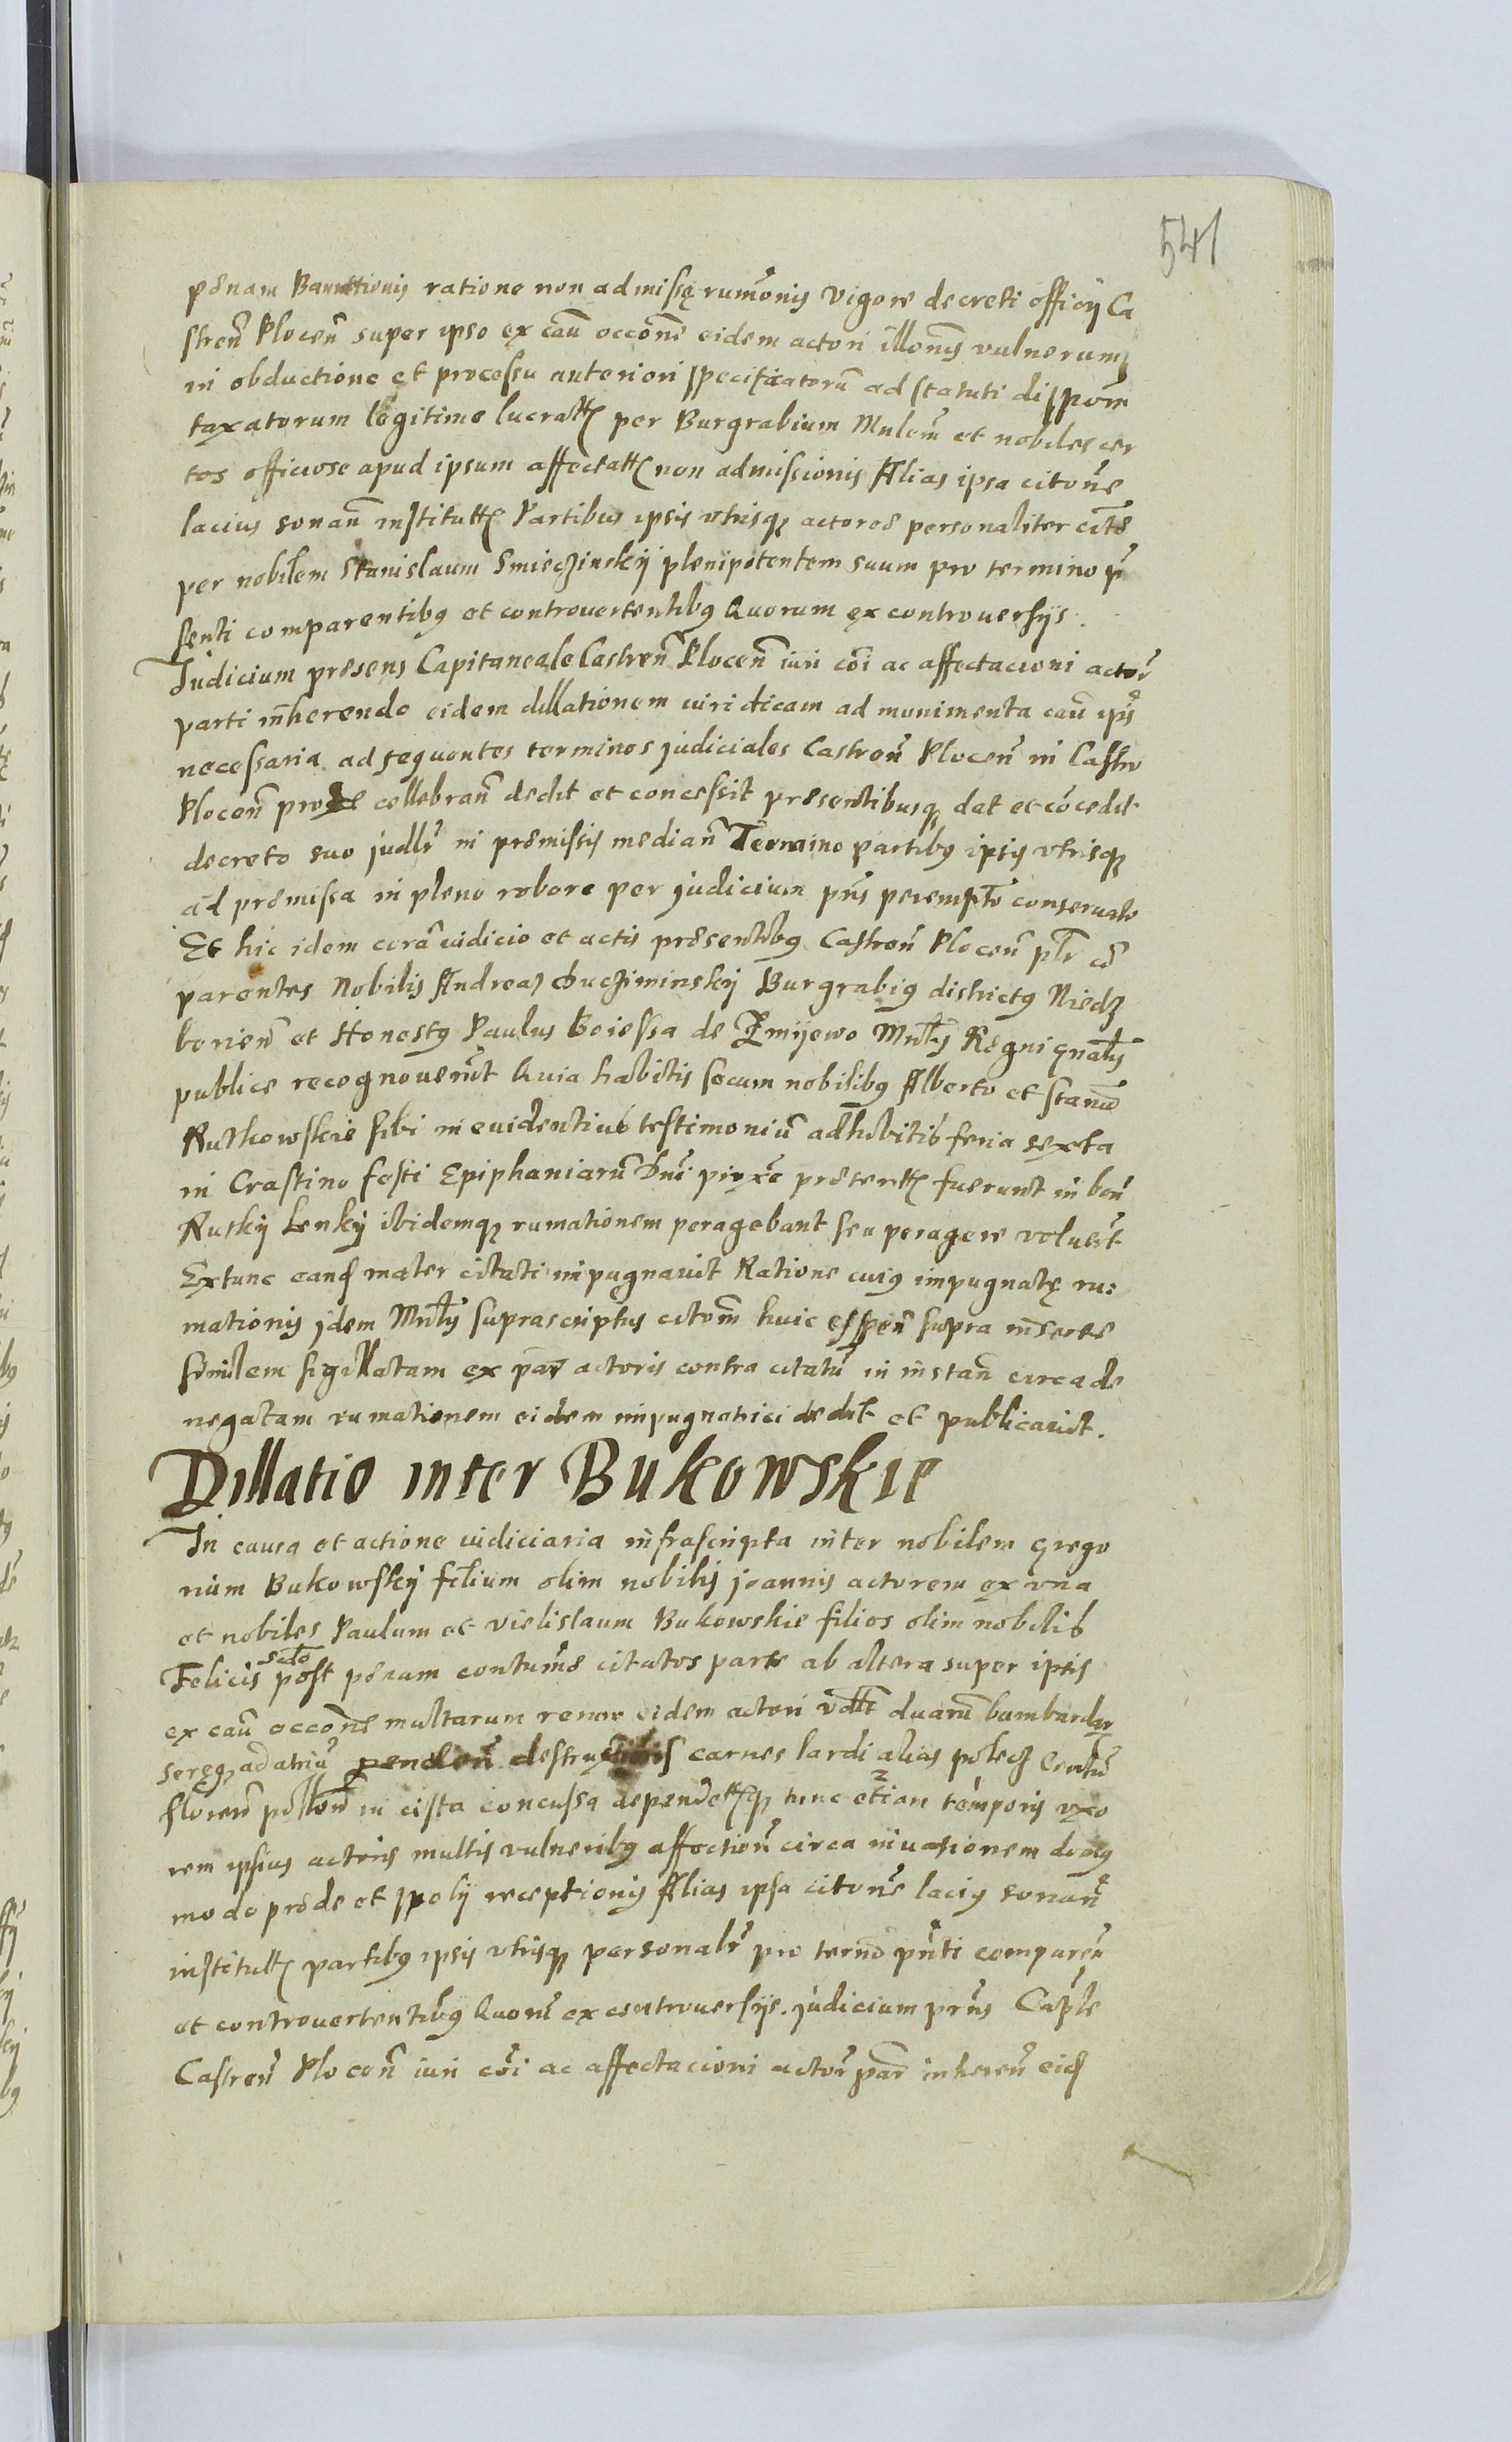 541
penam Bannitionis ratione non admissę rumōnis vigore decreti officij Ca
stren̄ Plocen̄ super ipso ex cau͂ occōne eidem actori illōnis vulnerum
in obductione et processu anteriori specificatorū ad statuti dispōm
taxatorum legitime lucratt per Burgrabium Mnlem̄ et nobiles cer
tos officiose apud ipsum affectatt non admissionis Alias ipsa citōne
lacius sonan̄ institutt Partibus ipsis vtrisq actores personaliter
per nobilem Stanislaum Smieczinskij plenipotentem suum pro termino p̄
senti comparentibus et controuertentibus Quorum ex controuersijs.
Judicium presens Capitaneale Castren̄ Plocen̄ iuri cōi ac affectacioni actor̄
parti in̄herendo eidem dillationem iuridicam ad munimenta cau͂ ipsi
necessaria ad sequentes terminos judiciales Castren̄ Plocen̄ in Castro
Plocen̄ proxe cellebran̄ dedit et concessit presentibusq dat et cōcedit
decreto suo judlr̄ in premissis median̄ Termino partibus ipsis vtrisq
ad premissa in pleno robore per judicium pn̄s perempto͂ conseruato
Et hic idem corā iudicio et actis presentibus Castren̄ Plocen̄ plr̄ cō
parentes Nobilis Andreas Duczyminskij Burgrabius districtus Niedz
borien̄ et Honestus Paulus Boiessa de Zmijewo Mnl̄is Regni gnal̄is
publice recognouerūt Quia habitis secum nobilibus Alberto et Stan̄o
Rutkowskie sibi in euidentius testimoniū adhibitis feria sexta
in Crastino festi Epiphaniarū Dn̄i proxe preteritt fuerunt in bon̄
Rutkij Lenkij ibidemq rumationem peragebant seu peragere voluert̄
Extunc eand mater citati inpugnauit Ratione cuius impugnatę ru:
mationis jdem Mnl̄is suprascriptus citōm huic supra inserte
similem sigillatam ex par̄ actoris contra citatū in instan̄ circa de
negatam rumationem eidem impugnatrici dedit et publicauit.
Dillatio inter Bukowskie
In causa et actione iudiciaria infrascripta inter nobilem Grego
rium Bukowskij filium olim nobilis joannis actorem ex vna
et nobiles Paulum et Vielislaum Bukowskie filios olim nobilis
Felicis scdo post penam contum̄e citatos parte ab altera super ipsis
ex cau͂ occōne multarum rerum eidem actori vdlt duarū bumbardar
seręq ad atriū penden̄ destructionis carnes lardi alias połecz Centū
floren̄ pollōn̄ in cista concussa depenettq tunc etiam temporis vxo
rem ipsius actoris multis vulneribus affection̄ circa inuasionem domus
modo prede et spolij receptionis Alias ipsa citōne lacius sonan̄
institutt partibus ipsis vtrisq personalr̄ pro term̄o pn̄ti comparen̄
et controuertentibus Quorū ex controuersijs. judicium prn̄s Capl̄e
Castren̄ Plocen̄ iuri cōi ac affectacioni actor̄ par̄ inheren̄ eid